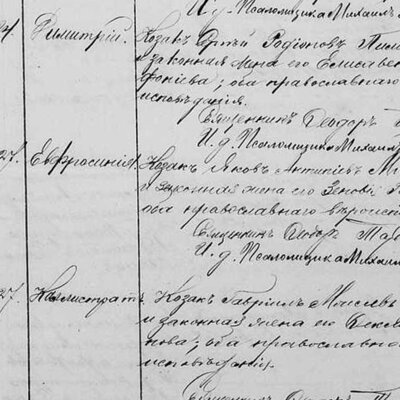 И. д. Псаломщика Михаилъ
Димитрій. Козакъ Сергѣй Родіоновъ
и законная жена его Елисавета
фоніева; оба православнаго
исповѣданія.
Священникъ Ѳеодоръ
И. д. Псаломщика Михаилъ
27. Евфросинія Козакъ Яковъ Антипіевъ
и законная жена его Зеновія
оба православнаго вѣроиспо
Священникъ Ѳеодоръ
И. д. Псаломщика Михаилъ
27. Каллистратъ Козакъ Гавріилъ Моисеевъ
и законная жена его
нова; оба православнаго
исповѣданія.
Священникъ Ѳеодоръ